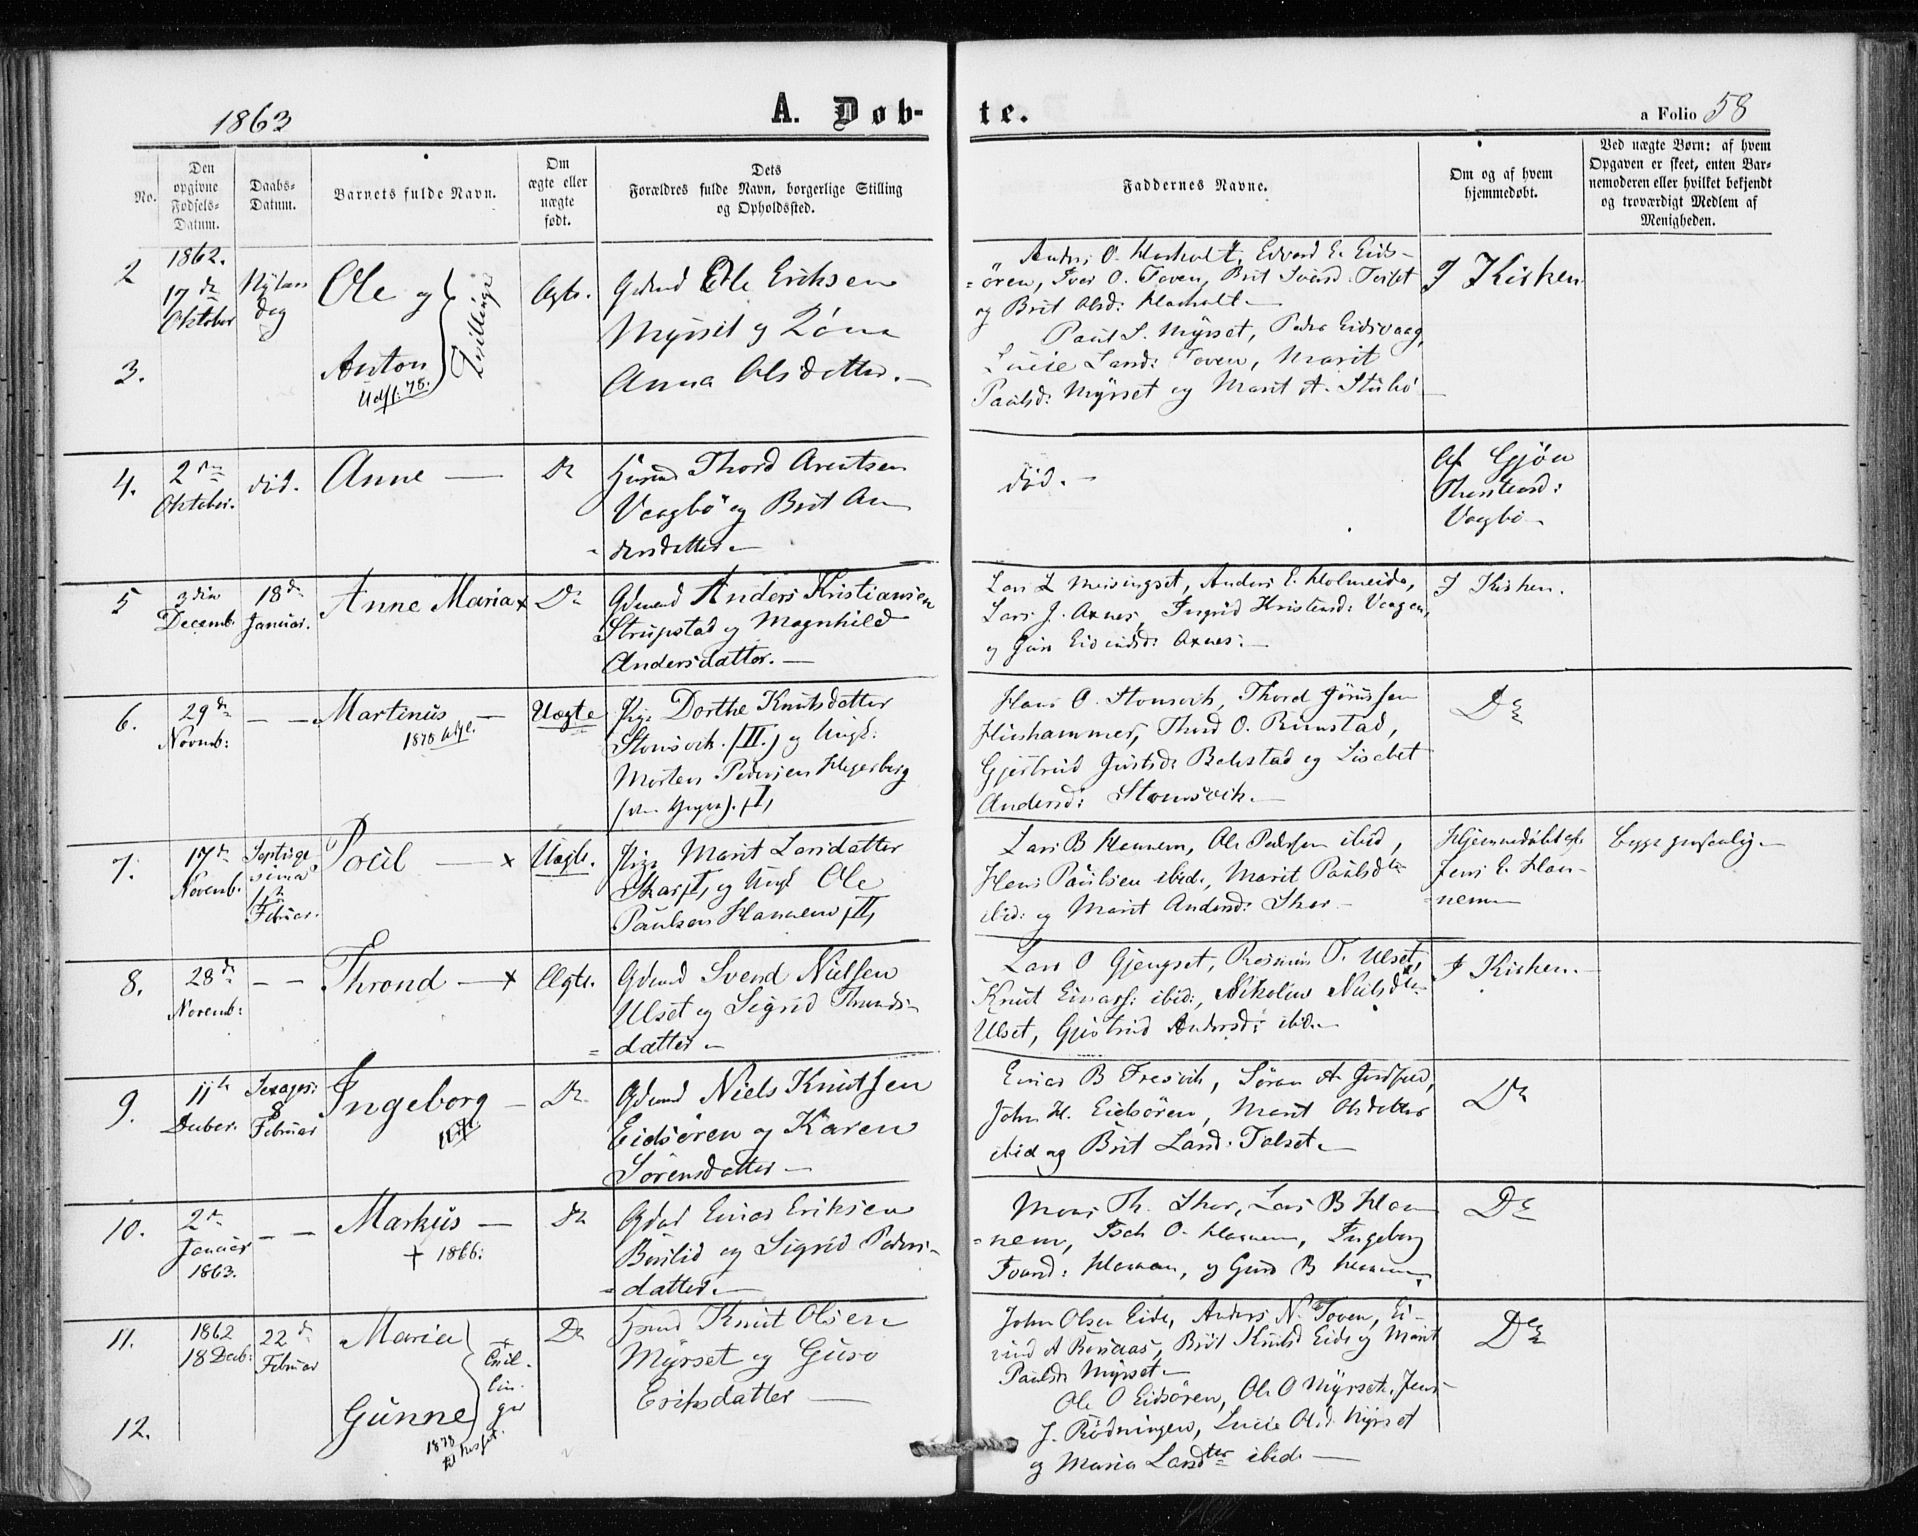 1863
A. Døb-
te.
a Folio 58
No.
Den
opgivne
Fødsels-
Datum.
Daabs-
Datum.
Barnets fulde Navn.
Om
ægte eller
uægte
født.
Dets
Forældres fulde Navn, borgerlige Stilling
og Opholdssted.
Faddernes Navne.
Om og af hvem
hjemmedøbt.
Ved uægte Børn: af hvem
Opgaven er skeet, enten Bar-
nemoderen eller hvilket bekjendt
og troværdigt Medlem af
Menigheden.
2
3.
1862.
17de
Oktober
Nytaars
dag
Ole og
Anton
Udfl. 78.
Tvillinger
Ægte.
Gdmd Ole Eriksen
Myrset og Kone
Anna Olsdatter. —
Anders O. Hasholt, Edvard E. Eids-
=ören, Iver O. Toven, Brit
og Brit Olsd: Hasholt. —
Paul S. Myrset, Peder Eidsvaag,
Lucie Larsd: Toven, Marit
Paulsd: Myrset og Marit A. Stubö
I Kirken
4.
2den
Oktober.
did.
Anne —
Do
Thord Arntsen
Vaagbö og Brit An
=dersdatter. —
did. —
Af Gjön
Thostensd:
Vaagbö
5
3die
Decemb.
18de
Januar.
Anne Maria x
Do
Gdmd Anders Kristiansen
Strupstad og Magnhild
Andersdatter. —
Lars L Meisingset, Anders E. Holmeide,
Lars J. Axnes, Ingrid Kristensd: Vaagen,
og Guru Eivindsd: Axnes: —
I Kirken.
6.
29de
Novemb:
— —
Martinus —
1878 Udfl.
Uægte
Pige Dorthe Knutsdatter
Stensvik. (II.) og Ungk:
Morten Pedersen Hegerberg
(I)
Hans O. Stensvik, Thord Jörnssen
Hinshammer, Thord O. Rimstad,
Gjertrud Bekstad og Lisebet
Andersd: Stensvik. —
Do
7.
17de
Novemb.
Septuage
sima
1ste
Februar.
Poul — x
Uægte.
Pige Marit Larsdatter
Skar (I) og Ungk Ole
Paulsen Hammen (II)
Lars B Hamnem, Ole Pedersen ibid,
Hans Paulsen ibid., Marit Paulsdtr
ibid: og Marit Andersd: Skar —
Hjemmedöbt af
Jens E. Ham-
=nem
8.
28de
Novemb:
— —
Thrond — x
Ægte.
Gdmd Svend Nielsen
Ulset og Sigrid Thronds-
=datter —
Lars O Gjengset, Rasmus T. Ulset,
Knut Einars: ibid:, Nikoline Nielsdtr
Ulset, Gjertrud Andersd: ibid. —
I Kirken. —
9.
11te
Decber.
Sexages:
8
Februar
Ingeborg —
Do
Gdmd Niels Knutsen
Eidsören og Karen
Sörensdatter —
Einar B Fresvik, Sören A
John H. Eidsören, Marit Olsdatter
ibid og Brit Larsd: Talset —
Do
10.
2den
Januar
1863.
— —
Markus —
† 1866:
Do
Einar Eriksen
Böslid og Sigrid Peders-
=datter. —
Mons Th. Skar, Lars B Ham
=nem, Isak O. Hamnem, Ingeborg
Ivarsd: Hamnem, og Guru B Hamnem
Do
11.
12.
1862
18 Decb:
22de
Februar
Maria
Gunne
1878
til
Tvil-
lin-
ger
Do
Knut Olsen
Myrset og Guro
Eriksdatter —
John Olsen Eide, Anders N. Toven, Ei-
vind A Bönaas, Brit Knutsd Eide og Marit
Paulsd: Myrset —
Ole O Eidsören, Ole O Myrset, Jens
J. Rödningen, Lucie Olsd. Myrset
og Maria Larsdter ibid. —
Do